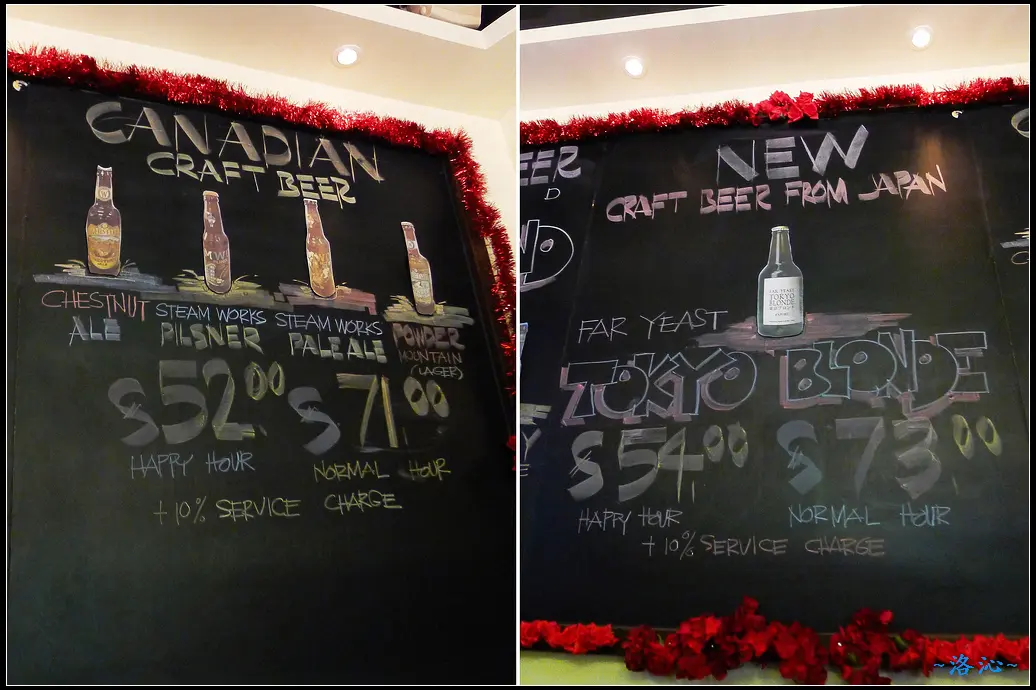 CANADIAN
CRAFT BEER
CHESTNUT
ALE
STEAM WORKS
PILSNER
STEAM WORKS
PALE ALE
POWDER
MOUNTAIN
(LAGER)
$52.00 $71.00
HAPPY HOUR NORMAL HOUR
+10% SERVICE CHARGE
EER
D
NEW
CRAFT BEER FROM JAPAN
FAR YEAST
TOKYO
BLONDE
FAR YEAST
TOKYO BLONDE
$54.00 $73.00
HAPPY HOUR NORMAL HOUR
+10% SERVICE CHARGE
~洛沁~